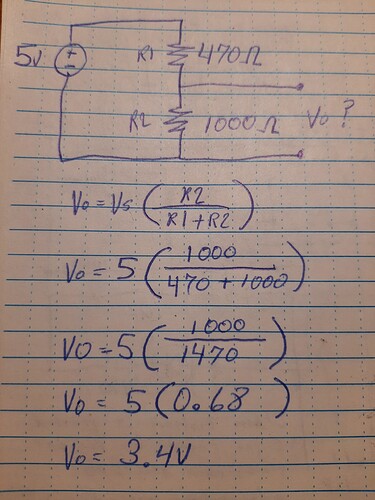 5V
R1 470Ω
R2 1000Ω Vo ?
Vo = Vs (R2 / R1+R2)
Vo = 5 (1000 / 470 + 1000)
VO = 5 (1000 / 1470)
Vo = 5 (0.68)
Vo = 3.4V